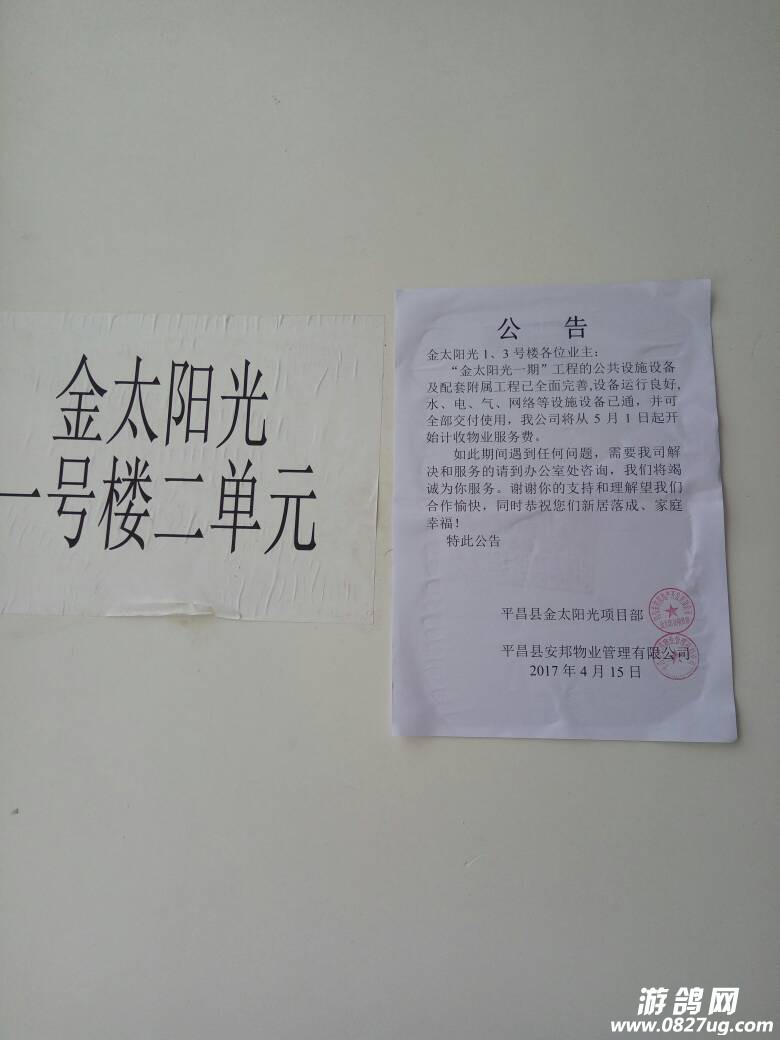 金太阳光
一号楼二单元
公 告
金太阳光1、3号楼各位业主：
“金太阳光一期”工程的公共设施设备
及配套附属工程已全面完善,设备运行良好,
水、电、气、网络等设施设备已通，并可
全部交付使用，我公司将从5月1日起开
始计收物业服务费。
如此期间遇到任何问题，需要我司解
决和服务的请到办公室处咨询，我们将竭
诚为你服务。谢谢你的支持和理解望我们
合作愉快，同时恭祝您们新居落成、家庭
幸福！
特此公告
平昌县金太阳光项目部
平昌县安邦物业管理有限公司
2017年4月15日
游鸽网
www.0827ug.com